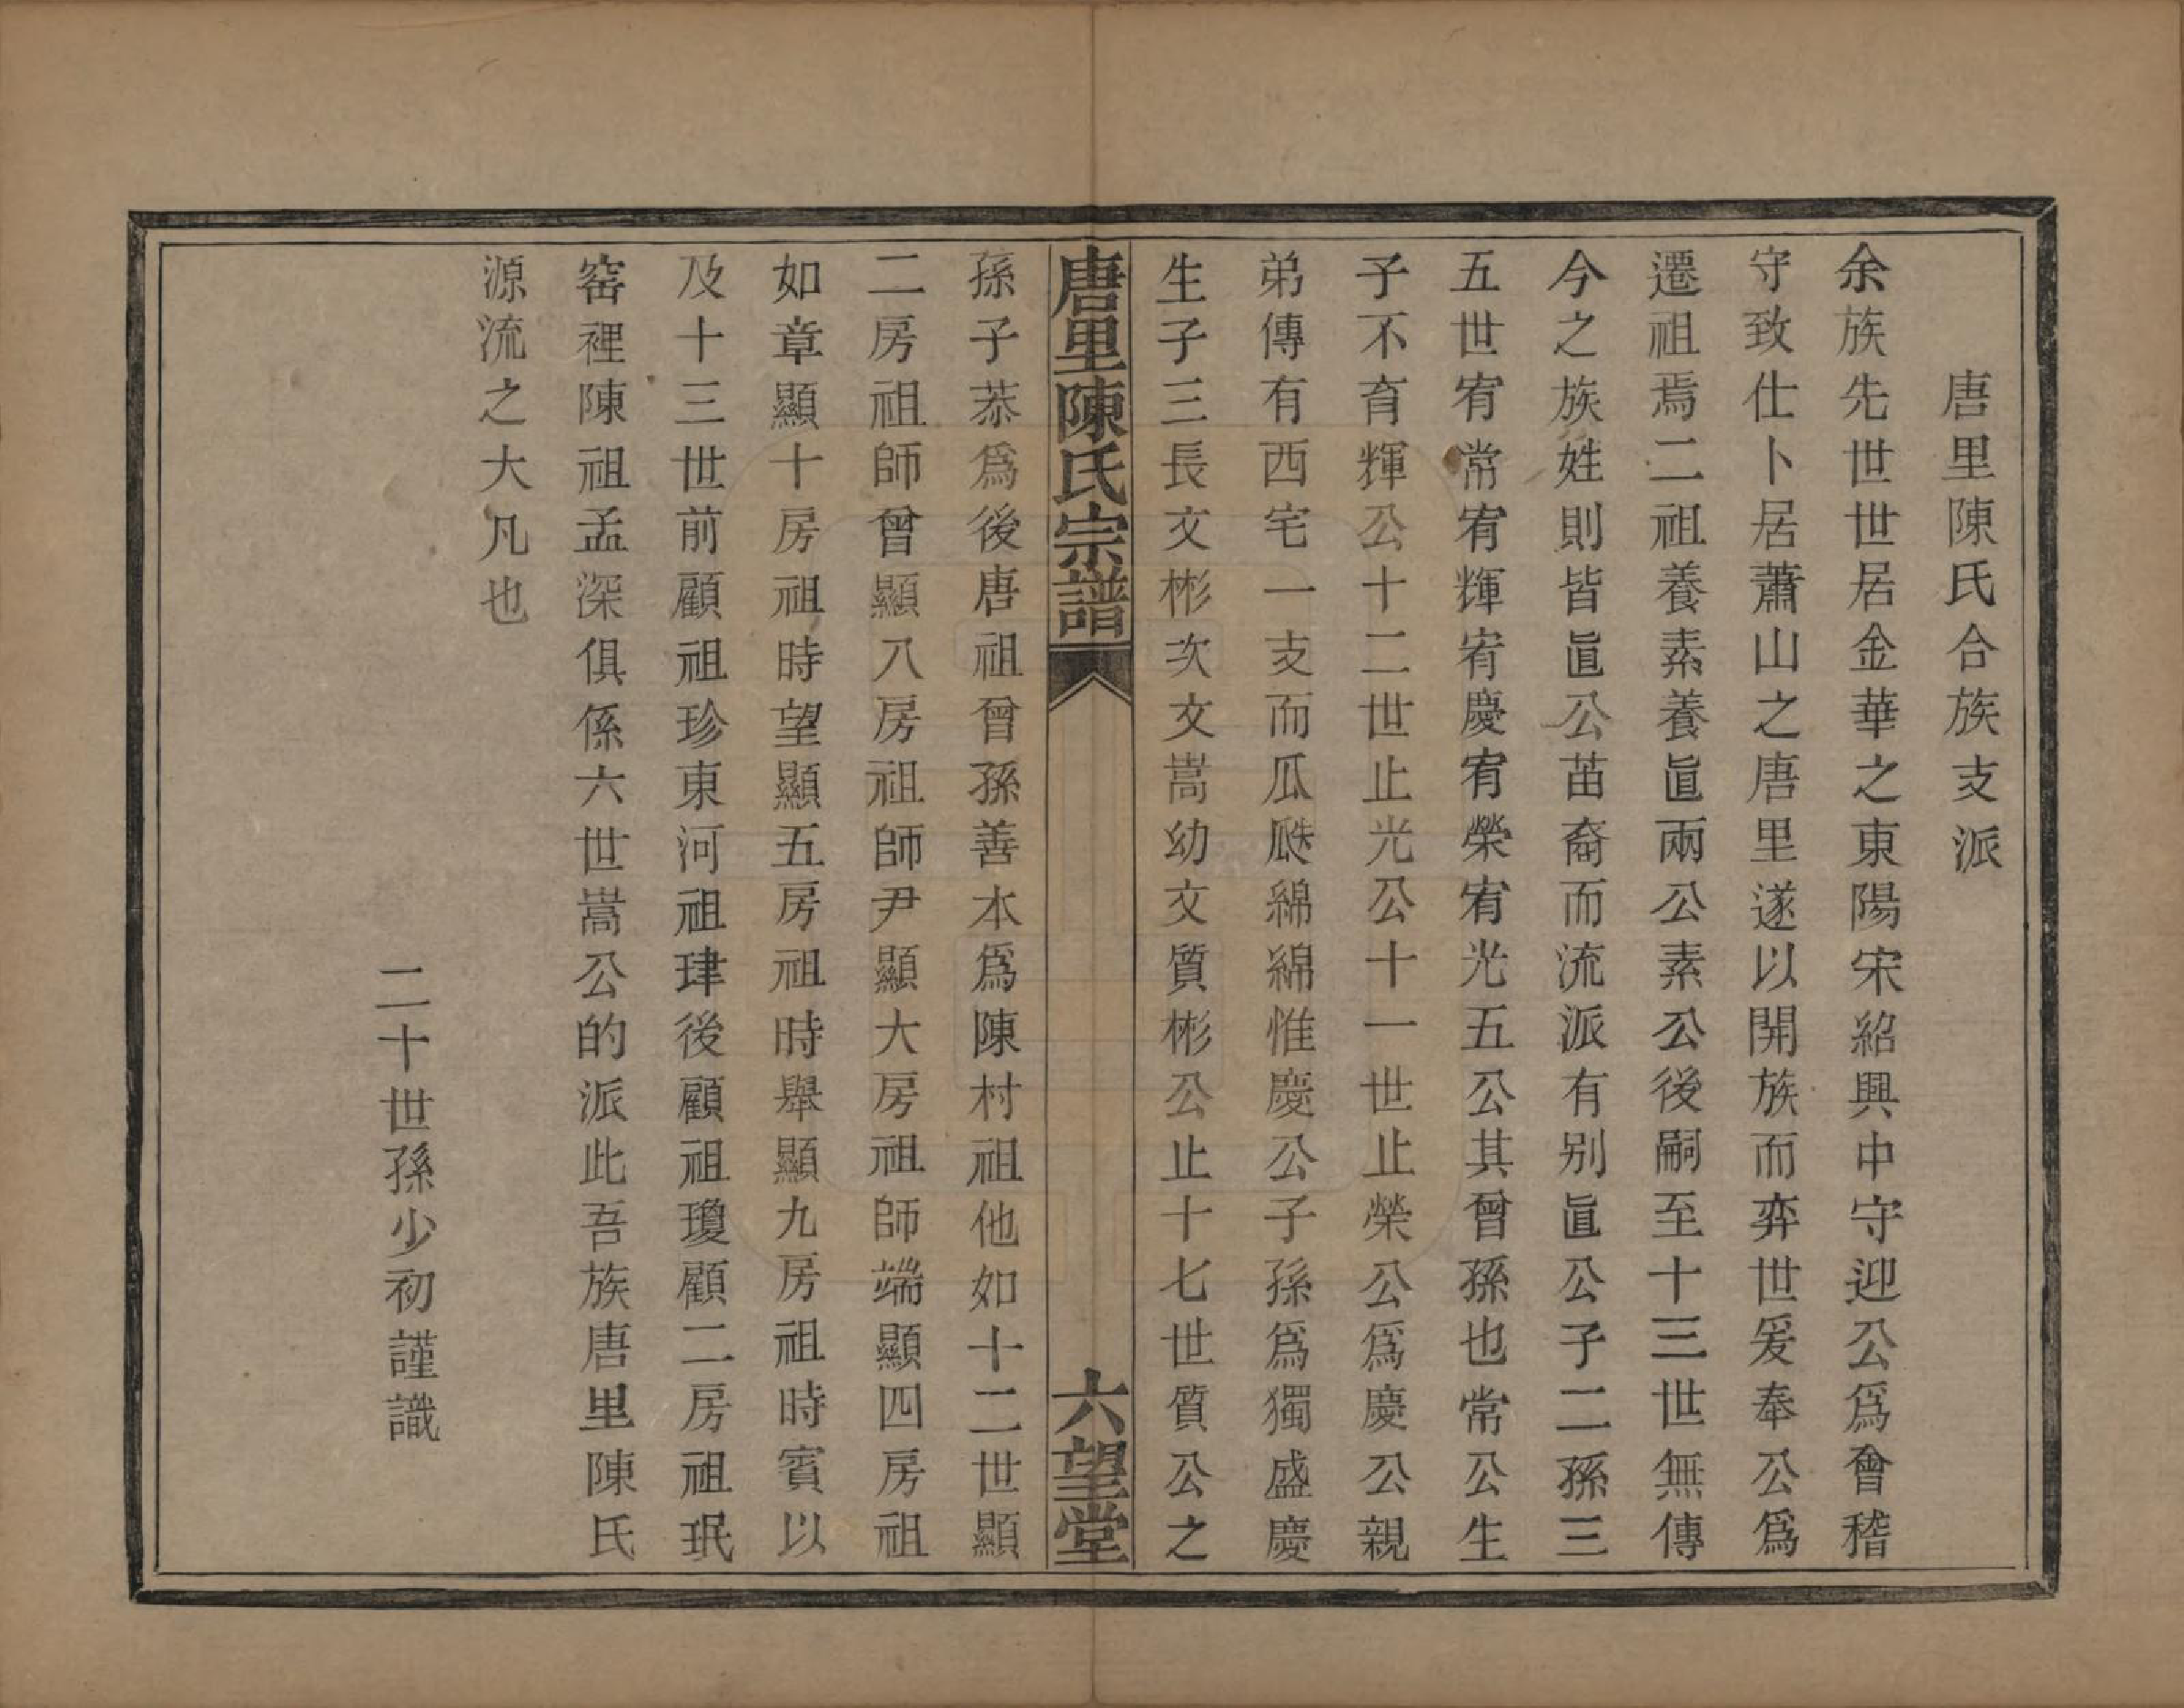 唐里陳氏合族支派
余族先世世居金華之東陽宋紹興中守迎公爲會稽
守致仕卜居蕭山之唐里遂以開族而弈世爰奉公爲
遷祖焉二祖養素養眞兩公素公後嗣至十三世無傳
今之族姓則皆眞公苗裔而流派有别眞公子二孫三
五世宥常宥輝宥慶宥榮宥光五公其曾孫也常公生
子不育輝公十二世止光公十一世止榮公爲慶公親
弟傳有西宅一支而瓜瓞綿綿惟慶公子孫爲獨盛慶
生子三長文彬次文嵩幼文質彬公止十七世質公之
唐里陳氏宗譜
六望堂
孫子恭爲後唐祖曾孫善本爲陳村祖他如十二世顯
二房祖師曾顯八房祖師尹顯大房祖師端顯四房祖
如章顯十房祖時望顯五房祖時舉顯九房祖時賓以
及十三世前顧祖珍東河祖珒後顧祖瓊顧二房祖珉
窑裡陳祖孟深俱係六世嵩公的派此吾族唐里陳氏
源流之大凡也
二十世孫少初謹識